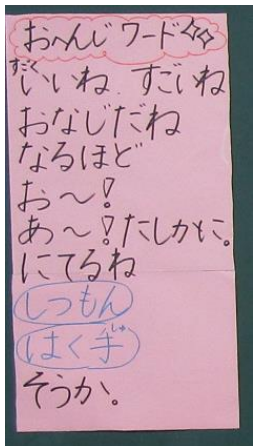 おへんじワード
すごくいいね すごいね
おなじだね
なるほど
お〜!
あ〜!たしかに。
にてるね
しつもん
はく手
そうか。